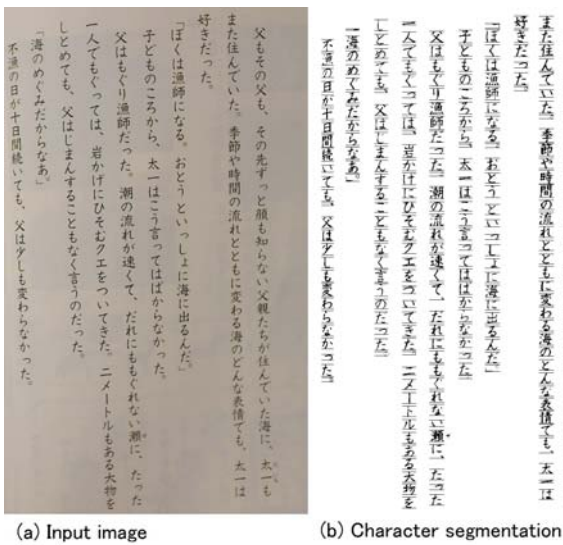 父もその父も、その先ずっと顔も知らない父親たちが住んでいた海に、太一も
また住んでいた。季節や時間の流れとともに変わる海のどんな表情でも、太一は
好きだった。
「ぼくは漁師になる。おとうといっしょに海に出るんだ。」
子どものころから、太一はこう言ってはばからなかった。
父はもぐり漁師だった。潮の流れが速くて、だれにももぐれない瀬に、たった
一人でもぐっては、岩かげにひそむクエをついてきた。二メートルもある大物を
しとめても、父はじまんすることもなく言うのだった。
「海のめぐみだからなあ。」
不漁の日が十日間続いても、父は少しも変わらなかった。
(a) Input image
また住んでいた。季節や時間の流れとともに変わる海のどんな表情でも、太一は
好きだった。
「ぼくは漁師になる。おとうといっしょに海に出るんだ。」
子どものころから、太一はこう言ってはばからなかった。
父はもぐり漁師だった。潮の流れが速くて、だれにももぐれない瀬に、たった
一人でもぐっては、岩かげにひそむクエをついてきた。二メートルもある大物を
しとめても、父はじまんすることもなく言うのだった。
「海のめぐみだからなあ。」
不漁の日が十日間続いても、父は少しも変わらなかった。
(b) Character segmentation